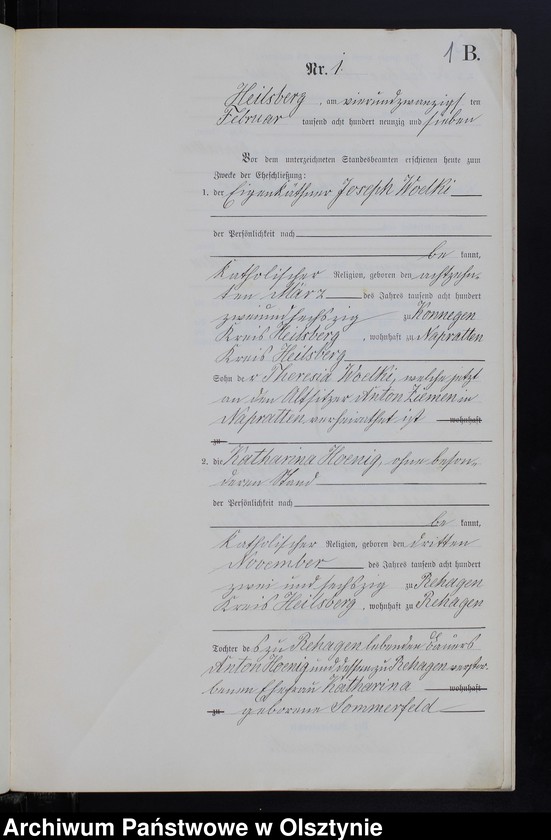 1 B.
Nr. 1.
Heilsberg, am vierundzwanzigsten
Februar tausend acht hundert neunzig und sieben
Vor dem unterzeichneten Standesbeamten erschienen heute zum
Zwecke der Eheschließung:
1. der Eigenkäthner Joseph Woelki
der Persönlichkeit nach
be kannt,
katholischer Religion, geboren den achtzehn-
ten März des Jahres tausend acht hundert
zweiundsechszig zu Konnegen
Kreis Heilsberg, wohnhaft zu Napratten
Kreis Heilsberg
Sohn der Theresia Woelki, welche jetzt
an den Altsitzer Anton Ziemen in
Napratten verheirathet ist wohnhaft
zu
2. die Katharina Hoenig, ohne beson-
deren Stand
der Persönlichkeit nach
be kannt,
katholischer Religion, geboren den dritten
November des Jahres tausend acht hundert
zwei und sechszig zu Rehagen
Kreis Heilsberg, wohnhaft zu Rehagen
Tochter des zu Rehagen lebenden Bauers
Anton Hoenig und dessen zu Rehagen verstor-
benen Ehefrau Katharina wohnhaft
zu geborene Sommerfeld
Archiwum Państwowe w Olsztynie